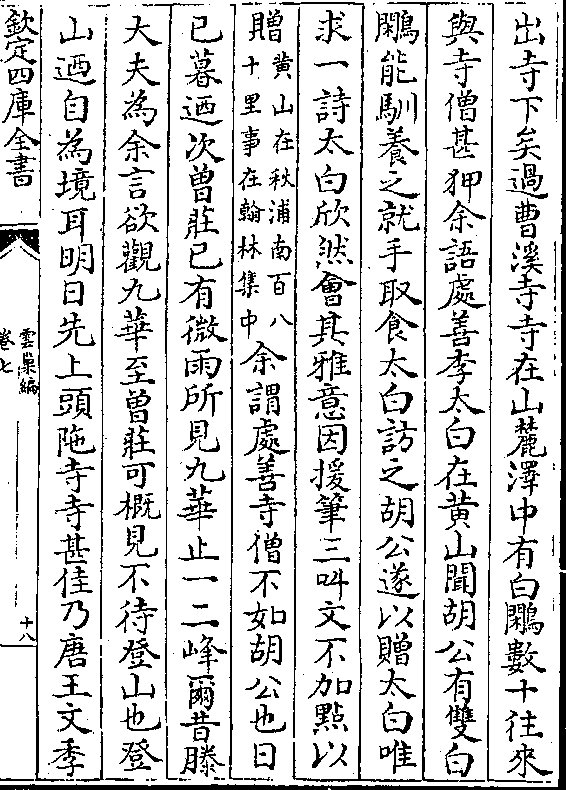 出寺下矣過曹溪寺寺在山麓澤中有白鷴數十往來
與寺僧甚狎余語處善李太白在黄山聞胡公有雙白
鷴能馴養之就手取食太白訪之胡公遂以贈太白唯
求一詩太白欣然會其雅意因援筆三叫文不加點以
贈黄山在秋浦南百八十里事在翰林集中余謂處善寺僧不如胡公也日
已暮迺次曽莊已有微雨所見九華止一二峰爾昔滕
大夫為余言欲觀九華至曽莊可概見不待登山也登
山迺自為境耳明日先上頭陁寺寺甚佳乃唐王文季
欽定四庫全書
雲巢編
卷七
十八